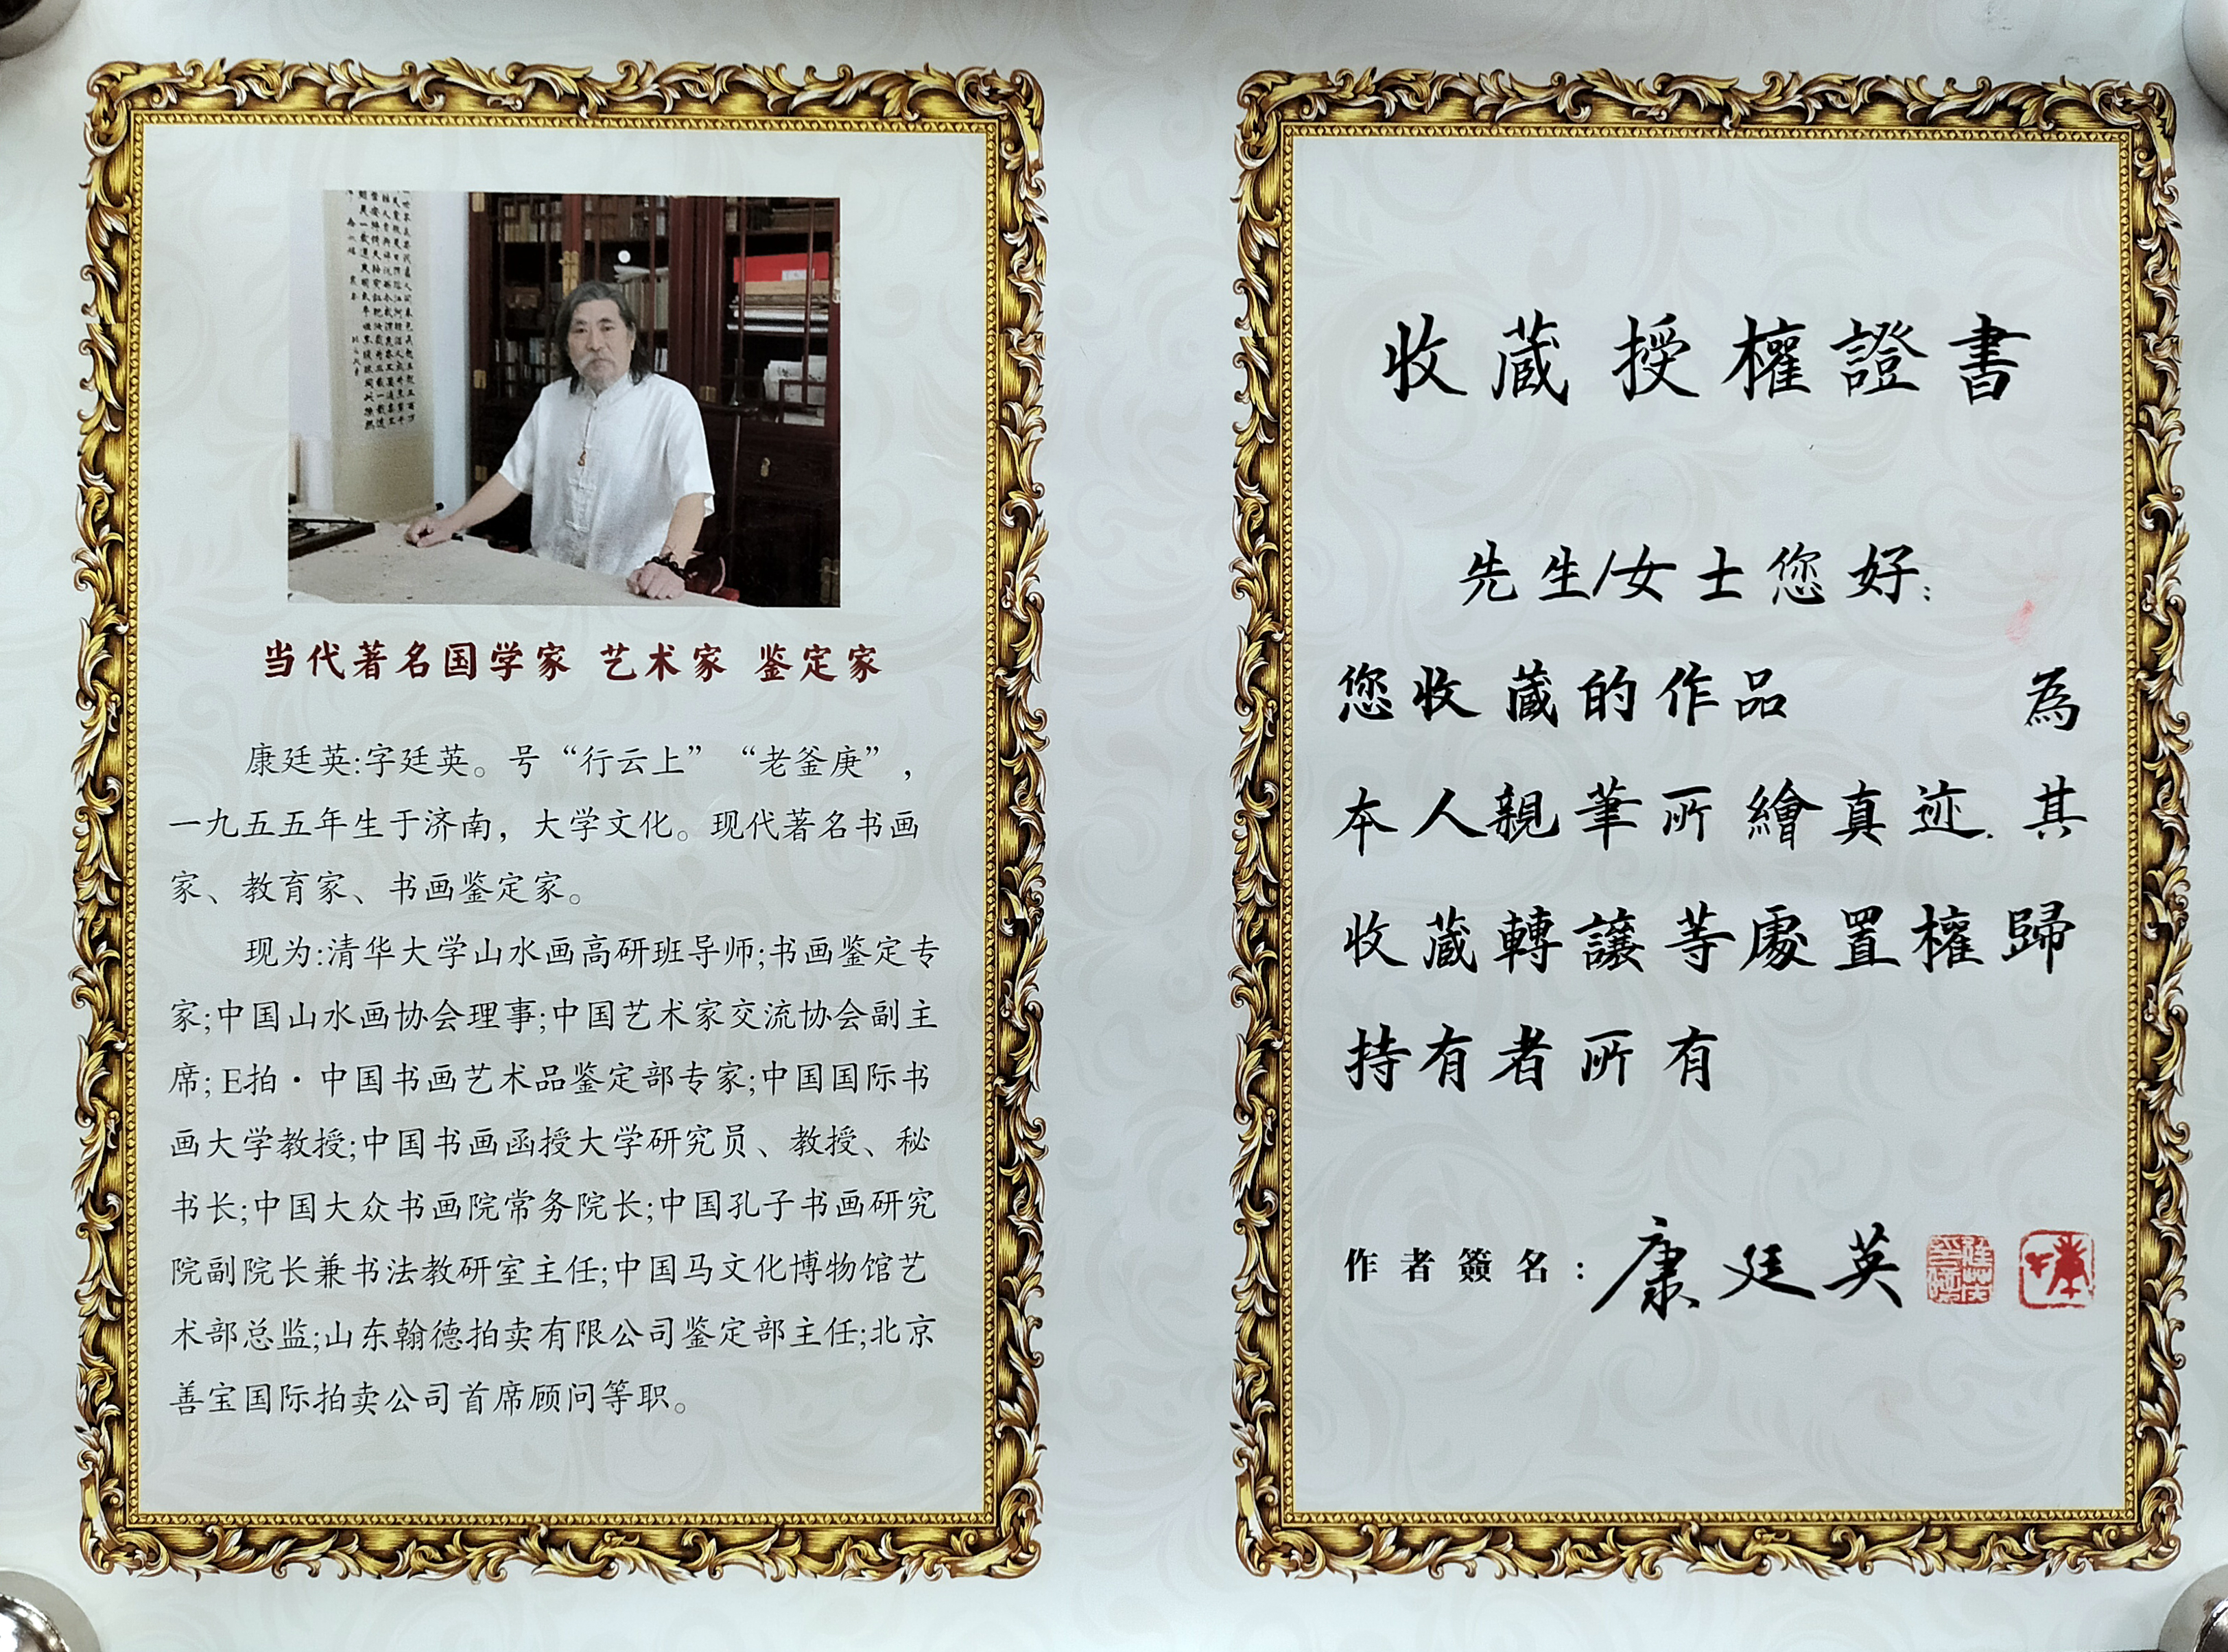 当代著名国学家 艺术家 鉴定家
康廷英:字廷英。号“行云上”“老釜庚”，
一九五五年生于济南，大学文化。现代著名书画
家、教育家、书画鉴定家。
现为:清华大学山水画高研班导师;书画鉴定专
家;中国山水画协会理事;中国艺术家交流协会副主
席; E拍·中国书画艺术品鉴定部专家;中国国际书
画大学教授;中国书画函授大学研究员、教授、秘
书长;中国大众书画院常务院长;中国孔子书画研究
院副院长兼书法教研室主任;中国马文化博物馆艺
术部总监;山东翰德拍卖有限公司鉴定部主任;北京
善宝国际拍卖公司首席顾问等职。
收蔵授權證書
先生/女士您好:
您收蔵的作品 為
本人親筆所繪真迹.其
收蔵轉讓等處置權歸
持有者所有
作者簽名:康廷英